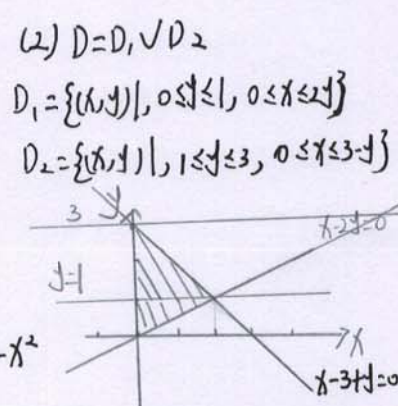 (2) D=D₁∨D₂
D₁={(x,y)|, 0≤y≤1, 0≤x≤2y}
D₂={(x,y)|, 1≤y≤3, 0≤x≤3-y}
3 y x-2y=0
y=1
-x² x
x-3+y=0